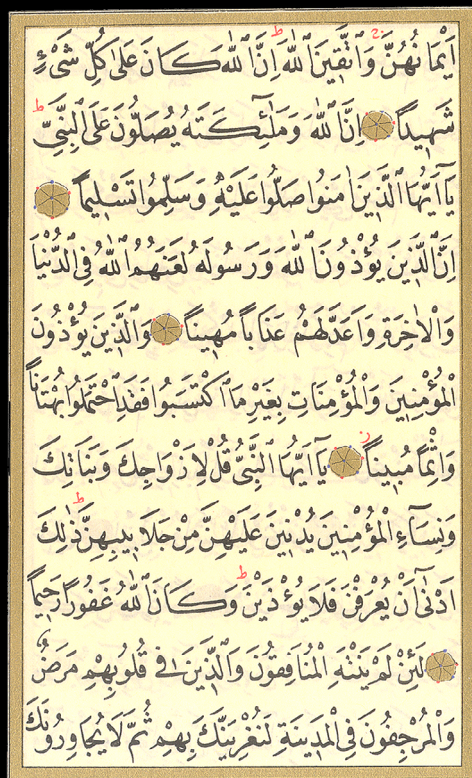 اَيْمَانُهُنَّ وَاتَّقِينَ اللّٰهَ اِنَّ اللّٰهَ كَانَ عَلٰى كُلِّ شَىْءٍ
شَهِيدًا اِنَّ اللّٰهَ وَمَلٰٓئِكَتَهُ يُصَلُّونَ عَلَى النَّبِىِّ
يَٓا اَيُّهَا الَّذِينَ اٰمَنُوا صَلُّوا عَلَيْهِ وَسَلِّمُوا تَسْلِيمًا
اِنَّ الَّذِينَ يُؤْذُونَ اللّٰهَ وَرَسُولَهُ لَعَنَهُمُ اللّٰهُ فِى الدُّنْيَا
وَالْاٰخِرَةِ وَاَعَدَّ لَهُمْ عَذَابًا مُهِينًا وَالَّذِينَ يُؤْذُونَ
الْمُؤْمِنِينَ وَالْمُؤْمِنَاتِ بِغَيْرِ مَا اكْتَسَبُوا فَقَدِ احْتَمَلُوا بُهْتَانًا
وَاِثْمًا مُبِينًا يَٓا اَيُّهَا النَّبِىُّ قُلْ لِاَزْوَاجِكَ وَبَنَاتِكَ
وَنِسَٓاءِ الْمُؤْمِنِينَ يُدْنِينَ عَلَيْهِنَّ مِنْ جَلَابِيبِهِنَّ ذٰلِكَ
اَدْنٰٓى اَنْ يُعْرَفْنَ فَلَا يُؤْذَيْنَ وَكَانَ اللّٰهُ غَفُورًا رَحِيمًا
لَئِنْ لَمْ يَنْتَهِ الْمُنَافِقُونَ وَالَّذِينَ فِى قُلُوبِهِمْ مَرَضٌ
وَالْمُرْجِفُونَ فِى الْمَدِينَةِ لَنُغْرِيَنَّكَ بِهِمْ ثُمَّ لَا يُجَاوِرُونَكَ